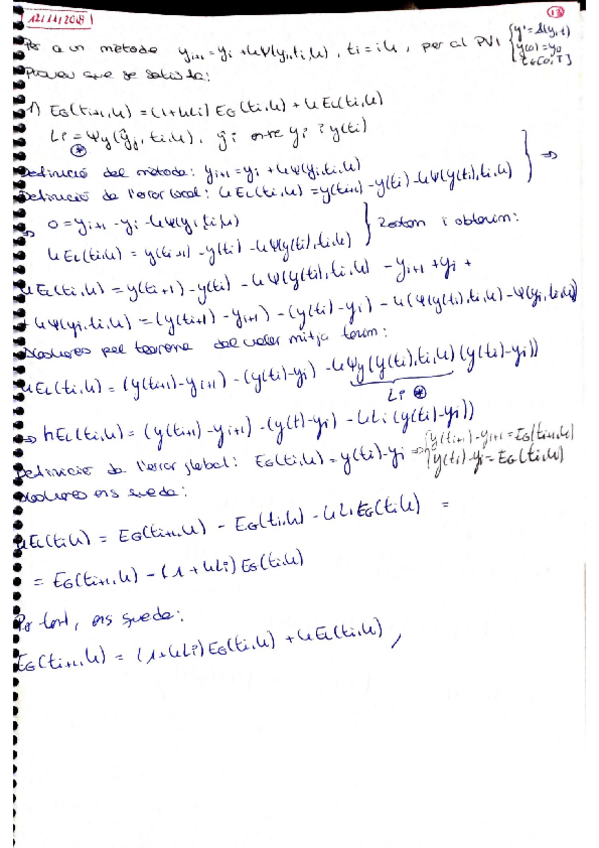 12/11/2018
13
Per a un mètode y_{i+1} = y_i + hΨ(y_i, t_i, h), t_i = ih, per al PVI { y' = f(y,t)
y(0) = y_0
t ∈ [0,T]
Proveu que se satisfà:
1) E_G(t_{i+1}, h) = (1+hL_i) E_G(t_i, h) + hE_L(t_i, h)
L_i = Ψ_y(ŷ_i, t_i, h), ŷ_i entre y_i i y(t_i)
⊛
Definició del mètode: y_{i+1} = y_i + hΨ(y_i, t_i, h)
Definició de l'error local: hE_L(t_i, h) = y(t_{i+1}) - y(t_i) - hΨ(y(t_i), t_i, h) } ⇒
⇒ 0 = y_{i+1} - y_i - hΨ(y_i, t_i, h)
hE_L(t_i, h) = y(t_{i+1}) - y(t_i) - hΨ(y(t_i), t_i, h) } Restem i obtenim:
hE_L(t_i, h) = y(t_{i+1}) - y(t_i) - hΨ(y(t_i), t_i, h) - y_{i+1} + y_i +
+ hΨ(y_i, t_i, h) = (y(t_{i+1}) - y_{i+1}) - (y(t_i) - y_i) - h(Ψ(y(t_i), t_i, h) - Ψ(y_i, t_i, h))
Aleshores pel teorema del valor mitjà tenim:
hE_L(t_i, h) = (y(t_{i+1}) - y_{i+1}) - (y(t_i) - y_i) - hΨ_y(y(t_i), t_i, h)(y(t_i) - y_i))
L_i ⊛
⇒ hE_L(t_i, h) = (y(t_{i+1}) - y_{i+1}) - (y(t) - y_i) - hL_i (y(t_i) - y_i))
Definició de l'error global: E_G(t_i, h) = y(t_i) - y_i ⇒ { y(t_{i+1}) - y_{i+1} = E_G(t_{i+1}, h)
y(t_i) - y_i = E_G(t_i, h)
Aleshores ens queda:
hE_L(t_i, h) = E_G(t_{i+1}, h) - E_G(t_i, h) - hL_i E_G(t_i, h) =
= E_G(t_{i+1}, h) - (1 + hL_i) E_G(t_i, h)
Per tant, ens queda:
E_G(t_{i+1}, h) = (1+hL_i) E_G(t_i, h) + hE_L(t_i, h) ,